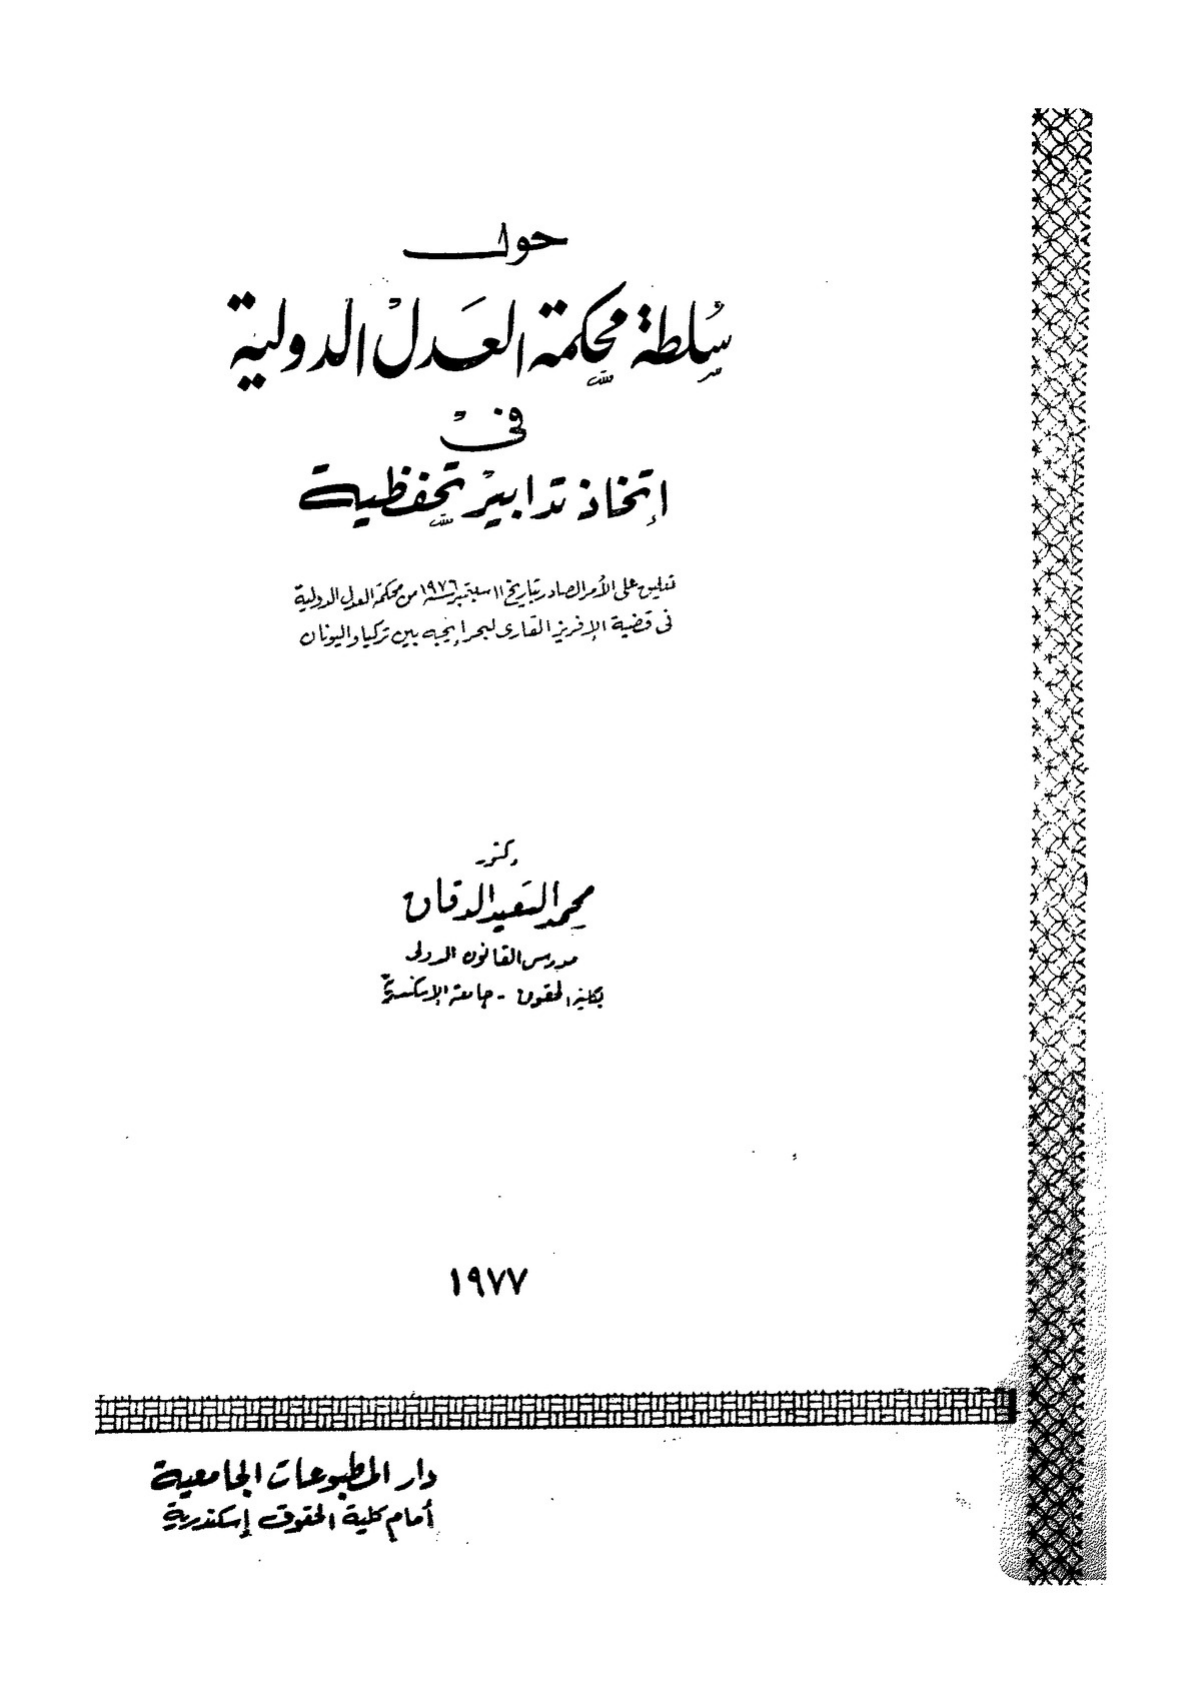 حول
سلطة محكمة العدل الدولية
فى
إتخاذ تدابير تحفظية
تعليق على الأمر الصادر بتاريخ ١١ سبتمبر سنة ١٩٧٦ من محكمة العدل الدولية
فى قضية الإفريز القارى لبحر إيجيه بين تركيا واليونان
دكتور
محمد السعيد الدقاق
مدرس القانون الدولى
بكلية الحقوق - جامعة الإسكندرية
١٩٧٧
دار المطبوعات الجامعية
أمام كلية الحقوق إسكندرية